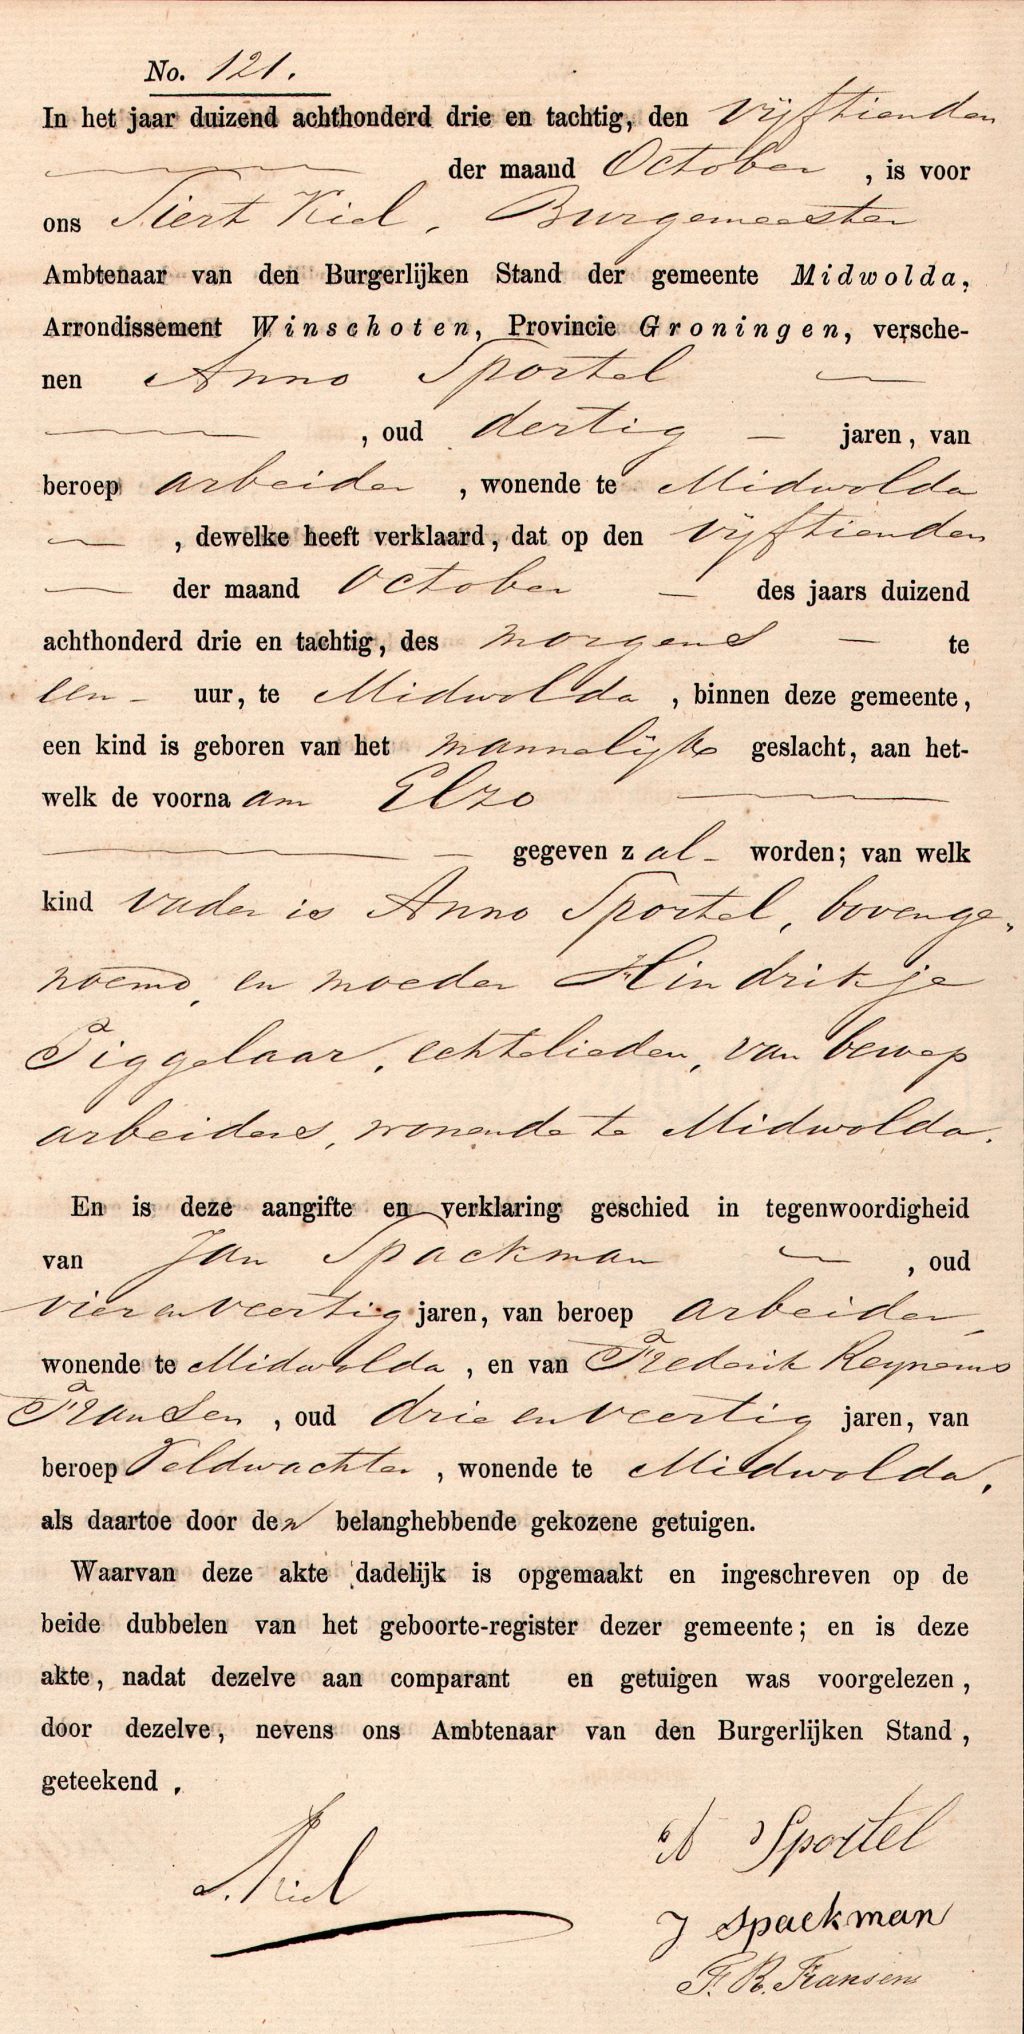 No. 121.
In het jaar duizend achthonderd drie en tachtig, den vijftienden
der maand October, is voor
ons Siert Kiel, Burgemeester
Ambtenaar van den Burgerlijken Stand der gemeente Midwolda,
Arrondissement Winschoten, Provincie Groningen, versche-
nen Anno Sportel
, oud dertig jaren, van
beroep arbeider, wonende te Midwolda
, dewelke heeft verklaard, dat op den vijftienden
der maand October des jaars duizend
achthonderd drie en tachtig, des morgens te
een uur, te Midwolda, binnen deze gemeente,
een kind is geboren van het mannelijk geslacht, aan het-
welk de voornaam Elzo
gegeven zal worden; van welk
kind vader is Anno Sportel, bovenge-
noemd, en moeder Hindrikje
Tiggelaar, echtelieden, van beroep
arbeiders, wonende te Midwolda.
En is deze aangifte en verklaring geschied in tegenwoordigheid
van Jan Spackman, oud
vier en veertig jaren, van beroep arbeider,
wonende te Midwolda, en van Frederik
Fransen, oud drie en veertig jaren, van
beroep Veldwachter, wonende te Midwolda,
als daartoe door den belanghebbende gekozene getuigen.
Waarvan deze akte dadelijk is opgemaakt en ingeschreven op de
beide dubbelen van het geboorte-register dezer gemeente; en is deze
akte, nadat dezelve aan comparant en getuigen was voorgelezen,
door dezelve, nevens ons Ambtenaar van den Burgerlijken Stand,
geteekend.
S. Kiel
A Sportel
J Spackman
F. R. Fransens